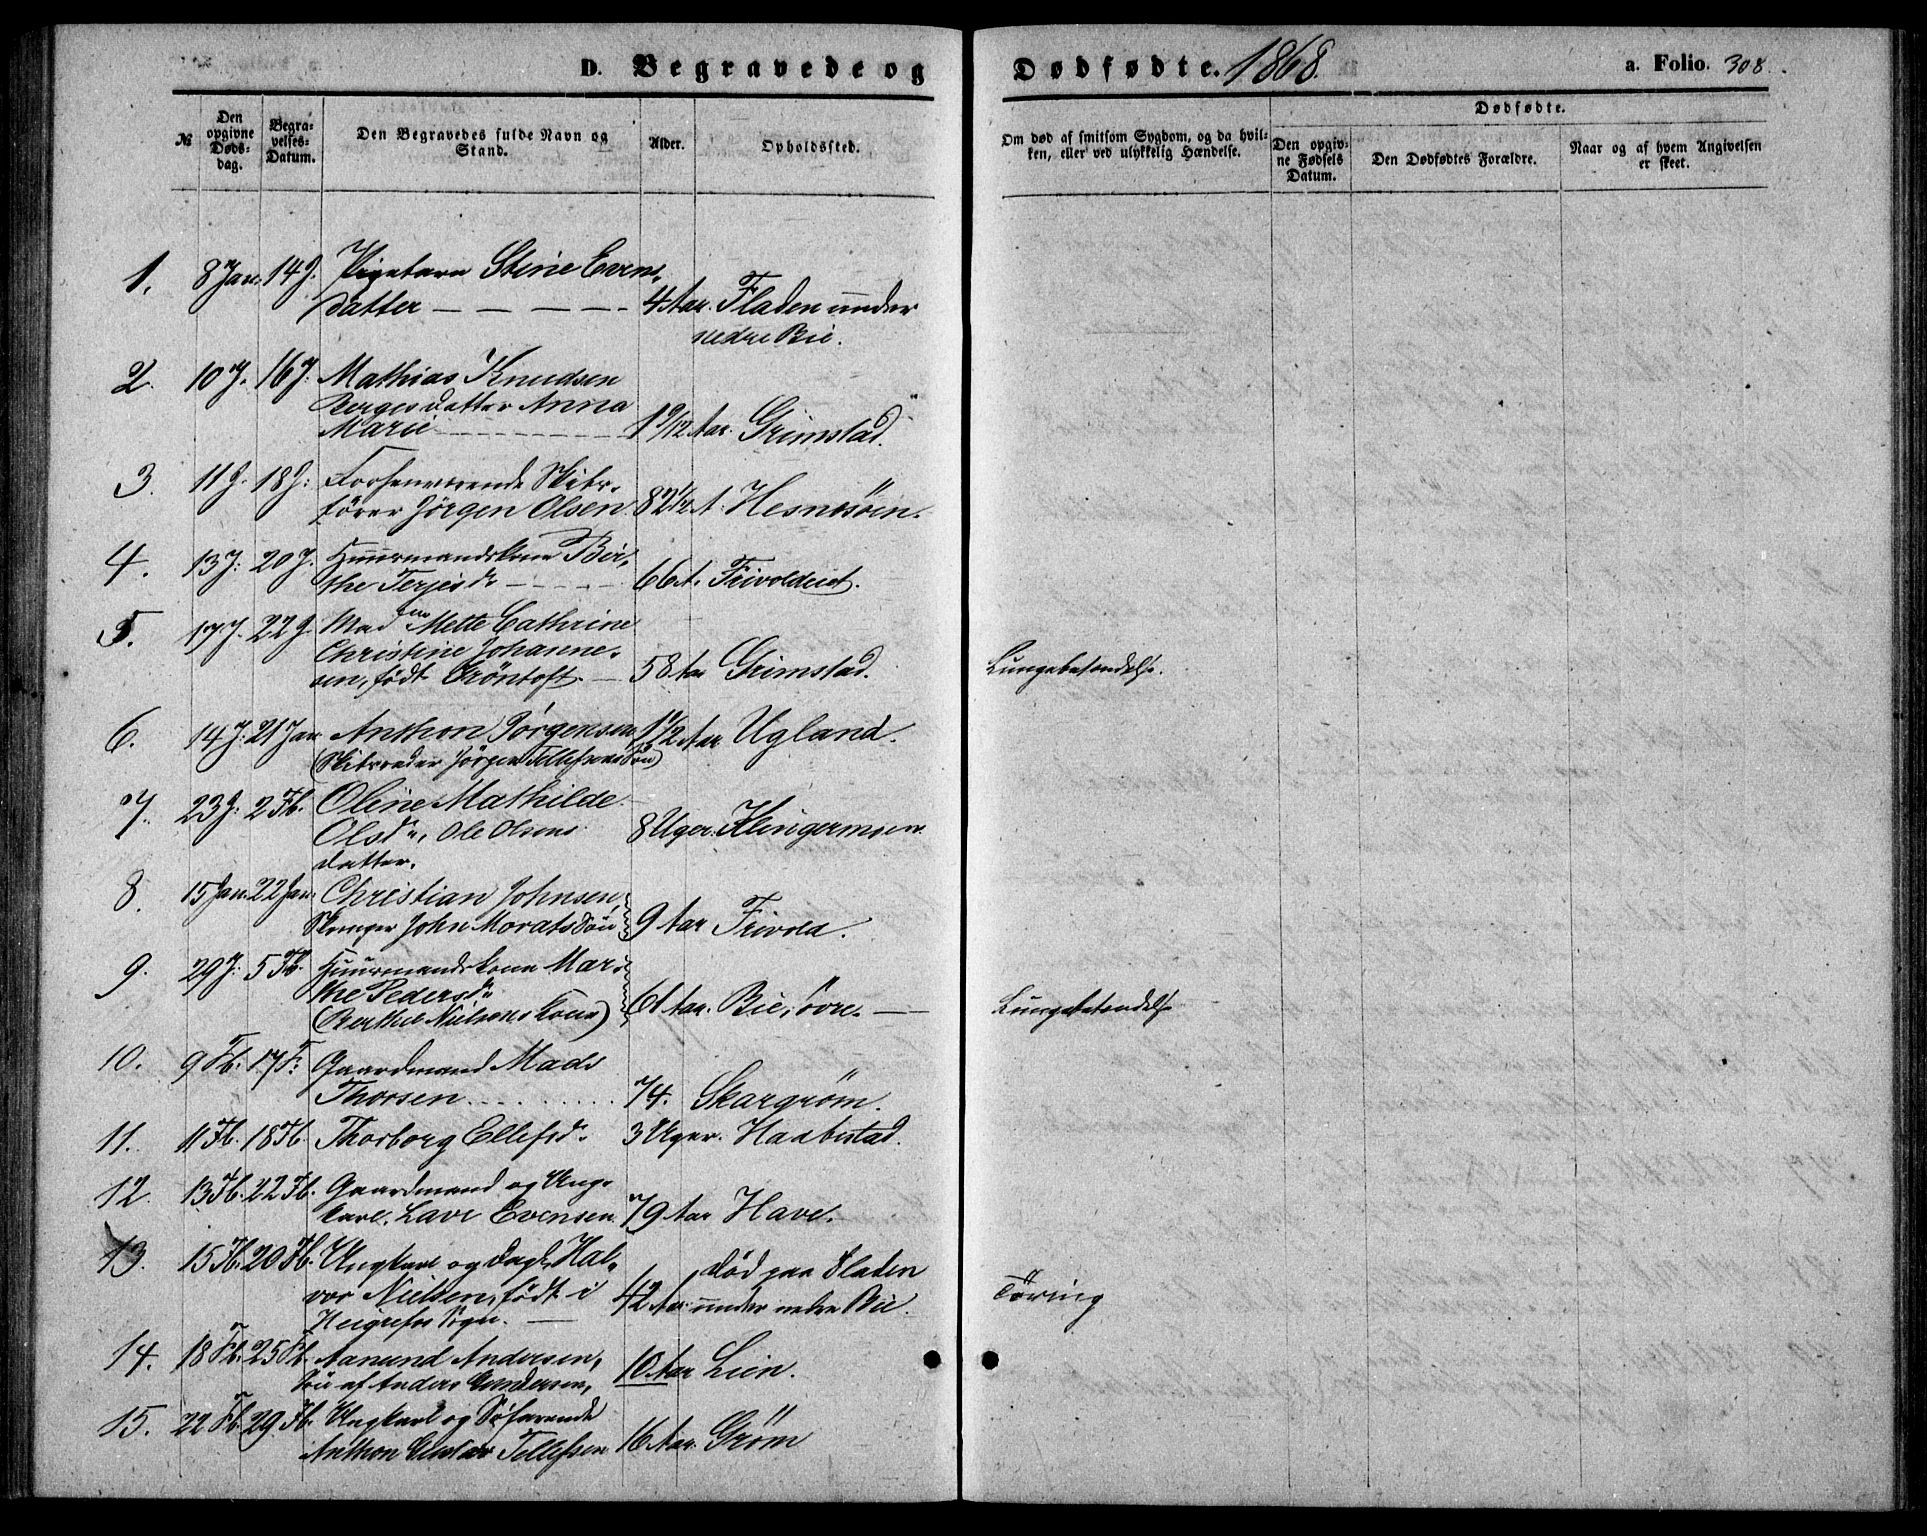 D. Begravede og Dødfødte. 1868. a. Folio. 308.
№
Den opgivne Døds-dag.
Begra-velses-Datum.
Den Begravedes fulde Navn og Stand.
Alder.
Opholdssted.
Om død af smitsom Sygdom, og da hvil-ken, eller ved ulykkelig Hændelse.
Dødfødte.
Den opgiv-ne Fødsels Datum.
Den Dødfødtes Forældre.
Naar og af hvem Angivelsen er skeet.
1. 8 Jan. 14 J. Pigebarn Stine Evens-
datter — — — — 4 Aar. Fladen under
nedre Bie.
2. 10 J. 16 J. Mathias Knudsen
Berges datter Anna
Marie 1 9/12 Aar. Grimstad.
3. 11 J. 18 J. Forhenværende Skibs-
fører Jørgen Olsen 82 1/2 A. Hesnesöen.
4. 13 J. 20 J. Huusmandskone Bir-
the Terjesd. — — 66 A. Frivoldeiet.
5. 17 J. 22 J. Madm Mette Cathrine
Christine Johanne-
sen, födt Gröntoft. — 58 Aar Grimstad. Lungebetændelse.
6. 14 J. 21 Jan Anthon Jörgensen, Aar Ugland.
(Skibsreder Jörgen Tellefsens Sön)
7. 23 J. 2 Fb. Oline Mathilde
Olsdr, Ole Olsens 8 Uger. Klingermoen
datter.
8. 15 Jan. 22 Jan. Christian Johnsen,
John Morats Sön 9 Aar Frivold.
9. 29 J. 5 Fb. Huusmandskone Mar-
the Pedersdr
(Berthel Nielsens Kone) 61 Aar. Bie, övre. — Lungebetændelse
10. 9 Fb. 17 F. Gaardmand Mads
Thorsen 74. Skargröm.
11. 11 Fb. 18 Fb. Thorborg Ellefsd. 3 Uger. Haabestad.
12. 13 Fb. 22 Fb. Gaardmand og Ung-
karl. Lave Evensen 79 Aar Have.
13. 15 Fb. 20 Fb. Ungkarl og Dagl. Hal-
vor Nielsen, födt i 42 Aar död paa Fladen
under nedre Bie. Töring
Sogn. —
14. 18 Fb. 25 Fb. Aanund Andersen,
Sön af Anders Gundersen, 10 Aar Lien.
15. 22 Fb. 29 Fb. Ungkarl og Söfarende
Anthon Gustav Tellefsen 16 Aar. Gröm